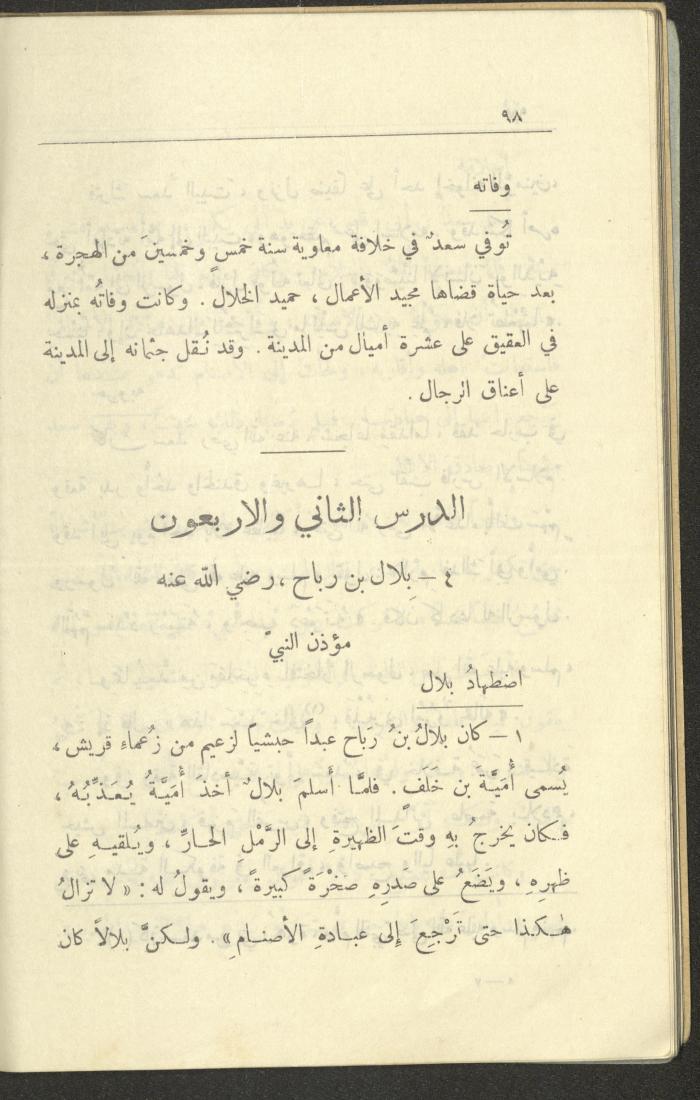 ٩٨
وفاته
تُوفي سعدٌ في خلافة معاوية سنة خمسٍ وخمسينَ من الهجرة ،
بعد حياة قضاها مجيد الأعمال ، حميد الخلال . وكانت وفاتُه بمنزله
في العقيق على عشرة أميال من المدينة . وقد نُقل جثمانه إلى المدينة
على أعناق الرجال .
الدرس الثاني والاربعون
٤ – بِلال بن رباح ، رضي الله عنه
مؤذن النبيّ
اضطهادُ بلال
١ – كان بلالُ بنُ رَباح عبداً حبشياً لزعيم من زُعماءِ قريش ،
يُسمى أُمَيَّةَ بن خَلَفٍ . فلمَّا أَسلمَ بلالٌ أخذَ أُمَيَّةُ يُعَذِّبُهُ ،
فكان يخرجُ بهِ وقتَ الظهيرةِ إلى الرَّمْلِ الحارِّ ، ويُلقيهِ على
ظهرِهِ ، ويَضَعُ على صَدرِهِ صَخْرَةً كبيرةً ، ويقولُ له : « لا تزالُ
هٰكذا حتى تَرْجِعَ إلى عبادةِ الأصنامِ » . ولكنَّ بلالاً كان